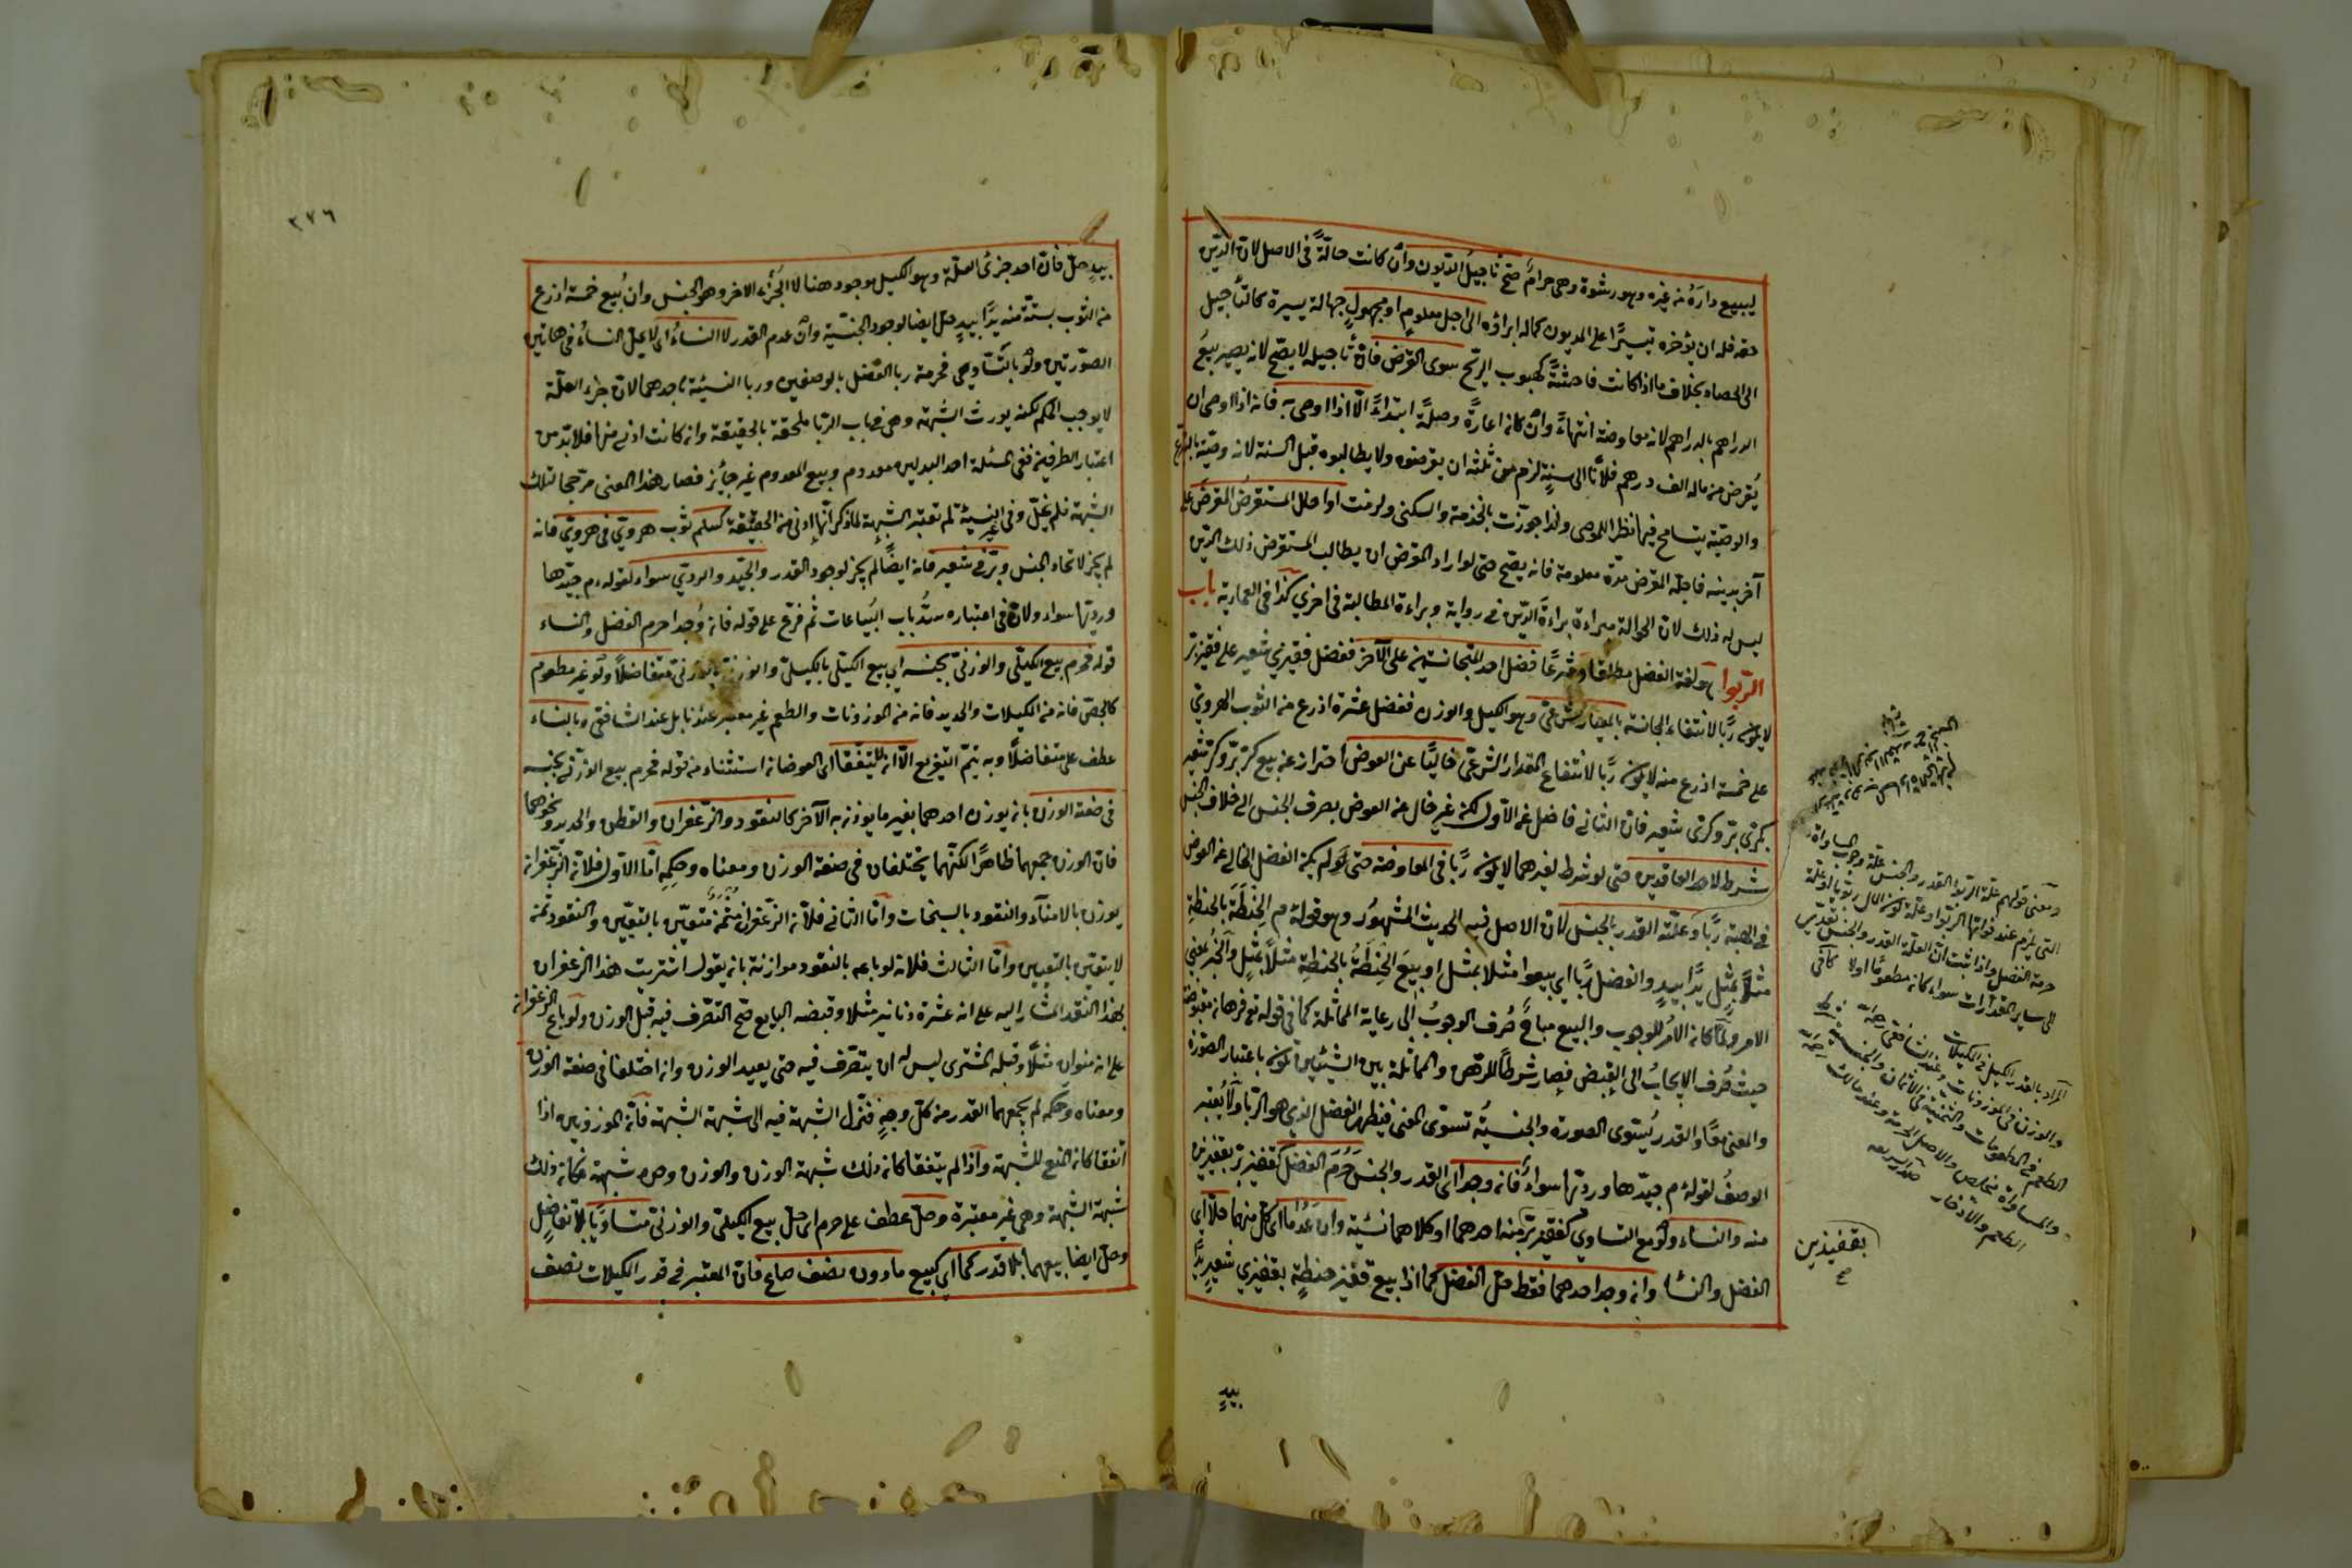 ليبيع داره من غيره وهو رشوة وهي حرام صح تأجيل الديون وان كانت حالة في الاصل لان الدين
حقه فله ان يؤخره تيسيرا على المديون كماله ابراؤه الى اجل معلوم او مجهول جهالة يسيرة كالتأجيل
الى الحصاد بخلاف ما اذا كانت فاحشة كهبوب الريح سوى القرض فان تأجيله لا يصح لانه يصير بيع
الدراهم بالدراهم لانه معاوضة انتهاء وان كان اعارة وصلة ابتداء الا اذا اوصى به فانه اذا اوصى ان
يقرض من ماله الف درهم فلانا الى سنة لزم من ثلثه ان يقرضوه ولا يطالبوه قبل السنة لانه وصية بالتبرع
والوصية يتسامح فيها نظرا للموصى ولذا جوزت بالخدمة والسكنى ولزمت او احال المستقرض المقرض على
آخر بدينه فاجله المقرض مدة معلومة فانه يصح حتى لو اراد المقرض ان يطالب المستقرض ذلك الدين
ليس له ذلك لان الحوالة مبراءة براءة الدين في رواية وبراءة المطالبة في اخرى كذا في العمادية باب
الربوا هو لغة الفضل مطلقا وشرعا فضل احد المتجانسين على الآخر ففضل قفيزي شعير على قفيز بر
لا يكون ربا لانتفاء المجانسة بالمعيار الشرعي وهو الكيل والوزن ففضل عشرة اذرع من الثوب الهروي
على خمسة اذرع منه لا يكون ربا لانتفاء المقدار الشرعي خاليا عن العوض احتراز عن بيع كر بر وكر شعير
بكري بر وكري شعير فان الثاني فاضل عن الاول لكنه غير خال عن العوض بصرف الجنس الى خلاف الجنس
شرط لاحد العاقدين حتى لو شرط لغيرهما لا يكون ربا في المعاوضة حتى لو لم يكن الفضل الخالي عن العوض
في الهبة ربا وعلته القدر بالجنس لان الاصل فيه الحديث المشهور وهو قوله م الحنطة بالحنطة
مثلا بمثل يدا بيد والفضل ربا اي بيعوا مثلا بمثل او بيع الحنطة بالحنطة مثلا بمثل والخبر بمعنى
الامر ولما كان الامر للوجوب والبيع مباح صرف الوجوب الى رعاية المماثلة كما في قوله تع فرهان مقبوضة
حيث صرف الايجاب الى القبض فصار شرطا للرهن والمماثلة بين الشيئين تكون باعتبار الصورة
والمعنى معا والقدر يستوي الصورة والجنسية تستوي المعنى فيظهر الفضل الذي هو الربا ولا يعتبر
الوصف لقوله م جيدها ورديها سواء فان وجدا اى القدر والجنس حرم الفضل كقفيز بر بقفيزين
منه والنساء ولو مع التساوي كقفيز بر منه احدهما او كلاهما نسئية وان عدما اى كل منهما حلا اي
الفضل والنساء وان وجد احدهما فقط حل الفضل كما اذا بيع قفيز حنطة بقفيزي شعير يدا
بيد
ومعنى قولهم علة الربوا القدر والجنس علة وجوب المساواة
التي يلزم عند فواتها الربوا
حرمة الفضل واذا ثبت ان العلة القدر والجنس تعدى
الى ساير المقدرات سواء كان مطعوما اولا كافي
المراد بالقدر الكيل في المكيلات
والوزن في الموزونات وعند الشافعي رحمه الله
الطعم في المطعومات والثمنية في الاثمان والجنسية شرط
والمساواة مخلص والاصل الحرمة وعند مالك رحمه الله
الطعم والادخار صدر الشريعه
بقفيزين
صح
٢٧٦
بيد حل فان احد جزئي العلة وهو الكيل موجود هنا لا الجزء الاخر وهو الجنس وان بيع خمسة اذرع
من الثوب بستة منه يدا بيد حل ايضا لوجود الجنسية وان عدم القدر لا النساء اى لا يحل النساء في هاتين
الصورتين ولو بالتساوي فحرمة ربا الفضل بالوصفين وربا النسيئة باحدهما لان جزء العلة
لا يوجب الحكم لكنه يورث الشبهة وهي في باب الربا ملحقة بالحقيقة وان كانت ادنى منها فلا بد من
اعتبار الطرفين ففي المسئلة احد البدلين معدوم وبيع المعدوم غير جائز فصار هذا المعنى مرجحا لتلك
الشبهة فلم يحل وفي غير النسيئة لم تعتبر الشبهة لما ذكر انها ادنى من الحقيقة كسلم ثوب هروي في هروي فانه
لم يجز لاتحاد الجنس وبر في شعير فانه ايضا لم يجز لوجود القدر والجيد والردي سواء لقوله م جيدها
ورديها سواء ولان في اعتباره سد باب البياعات ثم فرع على قوله فان وجدا حرم الفضل والنساء
قوله فحرم بيع الكيلي والوزني بجنسه اي بيع الكيلي بالكيلي والوزني بالوزني متفاضلا ولو غير مطعوم
كالجص فانه من المكيلات والحديد فانه من الموزونات والطعم غير معتبر عندنا بل عند الشافعي وبالنساء
عطف على متفاضلا وبه يتم التفريع الا ان لا يتفقا اى العوضان استثناء من قوله فحرم بيع الوزني بجنسه
في صفة الوزن بان يوزن احدهما بغير ما يوزن به الآخر كالنقود والزعفران والقطن والحديد ونحوهما
فان الوزن جمعهما ظاهرا لكنهما يختلفان في صفة الوزن ومعناه وحكمه اما الاول فلان الزعفران
يوزن بالامناء والنقود بالسنجات واما الثاني فلان الزعفران مثمن متعين بالتعيين والنقود ثمن
لا يتعين بالتعيين واما الثالث فلانه لو باعه بالنقود موازنة بان يقول اشتريت هذا الزعفران
بهذا النقد المشار اليه على انه عشرة دنانير مثلا وقبضه البايع صح التصرف فيه قبل الوزن ولو باع الزعفران
على انه منوان مثلا وقبله المشترى ليس له ان يتصرف فيه حتى يعيد الوزن وان اختلفا في صفة الوزن
ومعناه وحكمه لم يجمعهما القدر من كل وجه فتنزل الشبهة فيه الى شبهة الشبهة فان الموزونين اذا
اتفقا كان المنع للشبهة واذا لم يتفقا كان ذلك شبهة الوزن والوزن وحده شبهة فكان ذلك
شبهة الشبهة وهي غير معتبرة وحل عطف على حرم اى حل بيع الكيلي والوزني متساويا بلا تفاضل
وحل ايضا بيعهما بلا قدر كما اى كبيع ما دون نصف صاع فان المعتبر في قدر المكيلات نصف